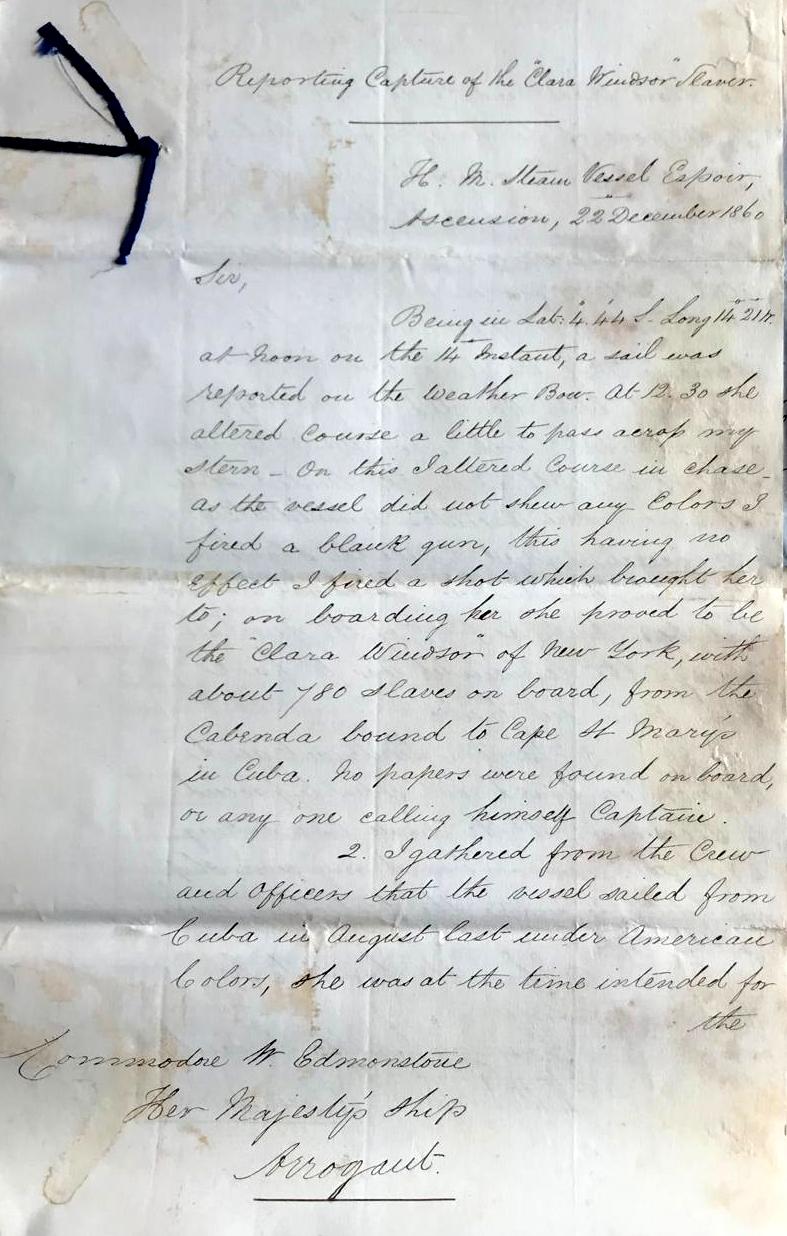 Reporting Capture of the "Clara Windsor" Slaver.
H. M. Steam Vessel Espoir,
Ascension, 22 December 1860
Sir,
Being in Lat: 4°.44' S. Long 14° 21' W.
at Noon on the 14 Instant, a sail was
reported on the Weather Bow. At 12.30 she
altered course a little to pass across my
stern - On this I altered Course in chase -
as the vessel did not shew any Colors I
fired a blank gun, this having no
effect I fired a shot which brought her
to; on boarding her she proved to be
the "Clara Windsor" of New York, with
about 780 slaves on board, from the
Cabenda bound to Cape St Mary's
in Cuba. No papers were found on board,
or any one calling himself Captain.
2. I gathered from the Crew
and Officers that the vessel sailed from
Cuba in August last under American
Colors, she was at the time intended for
the
Commodore W. Edmonstone
Her Majesty's Ship
Arrogant.